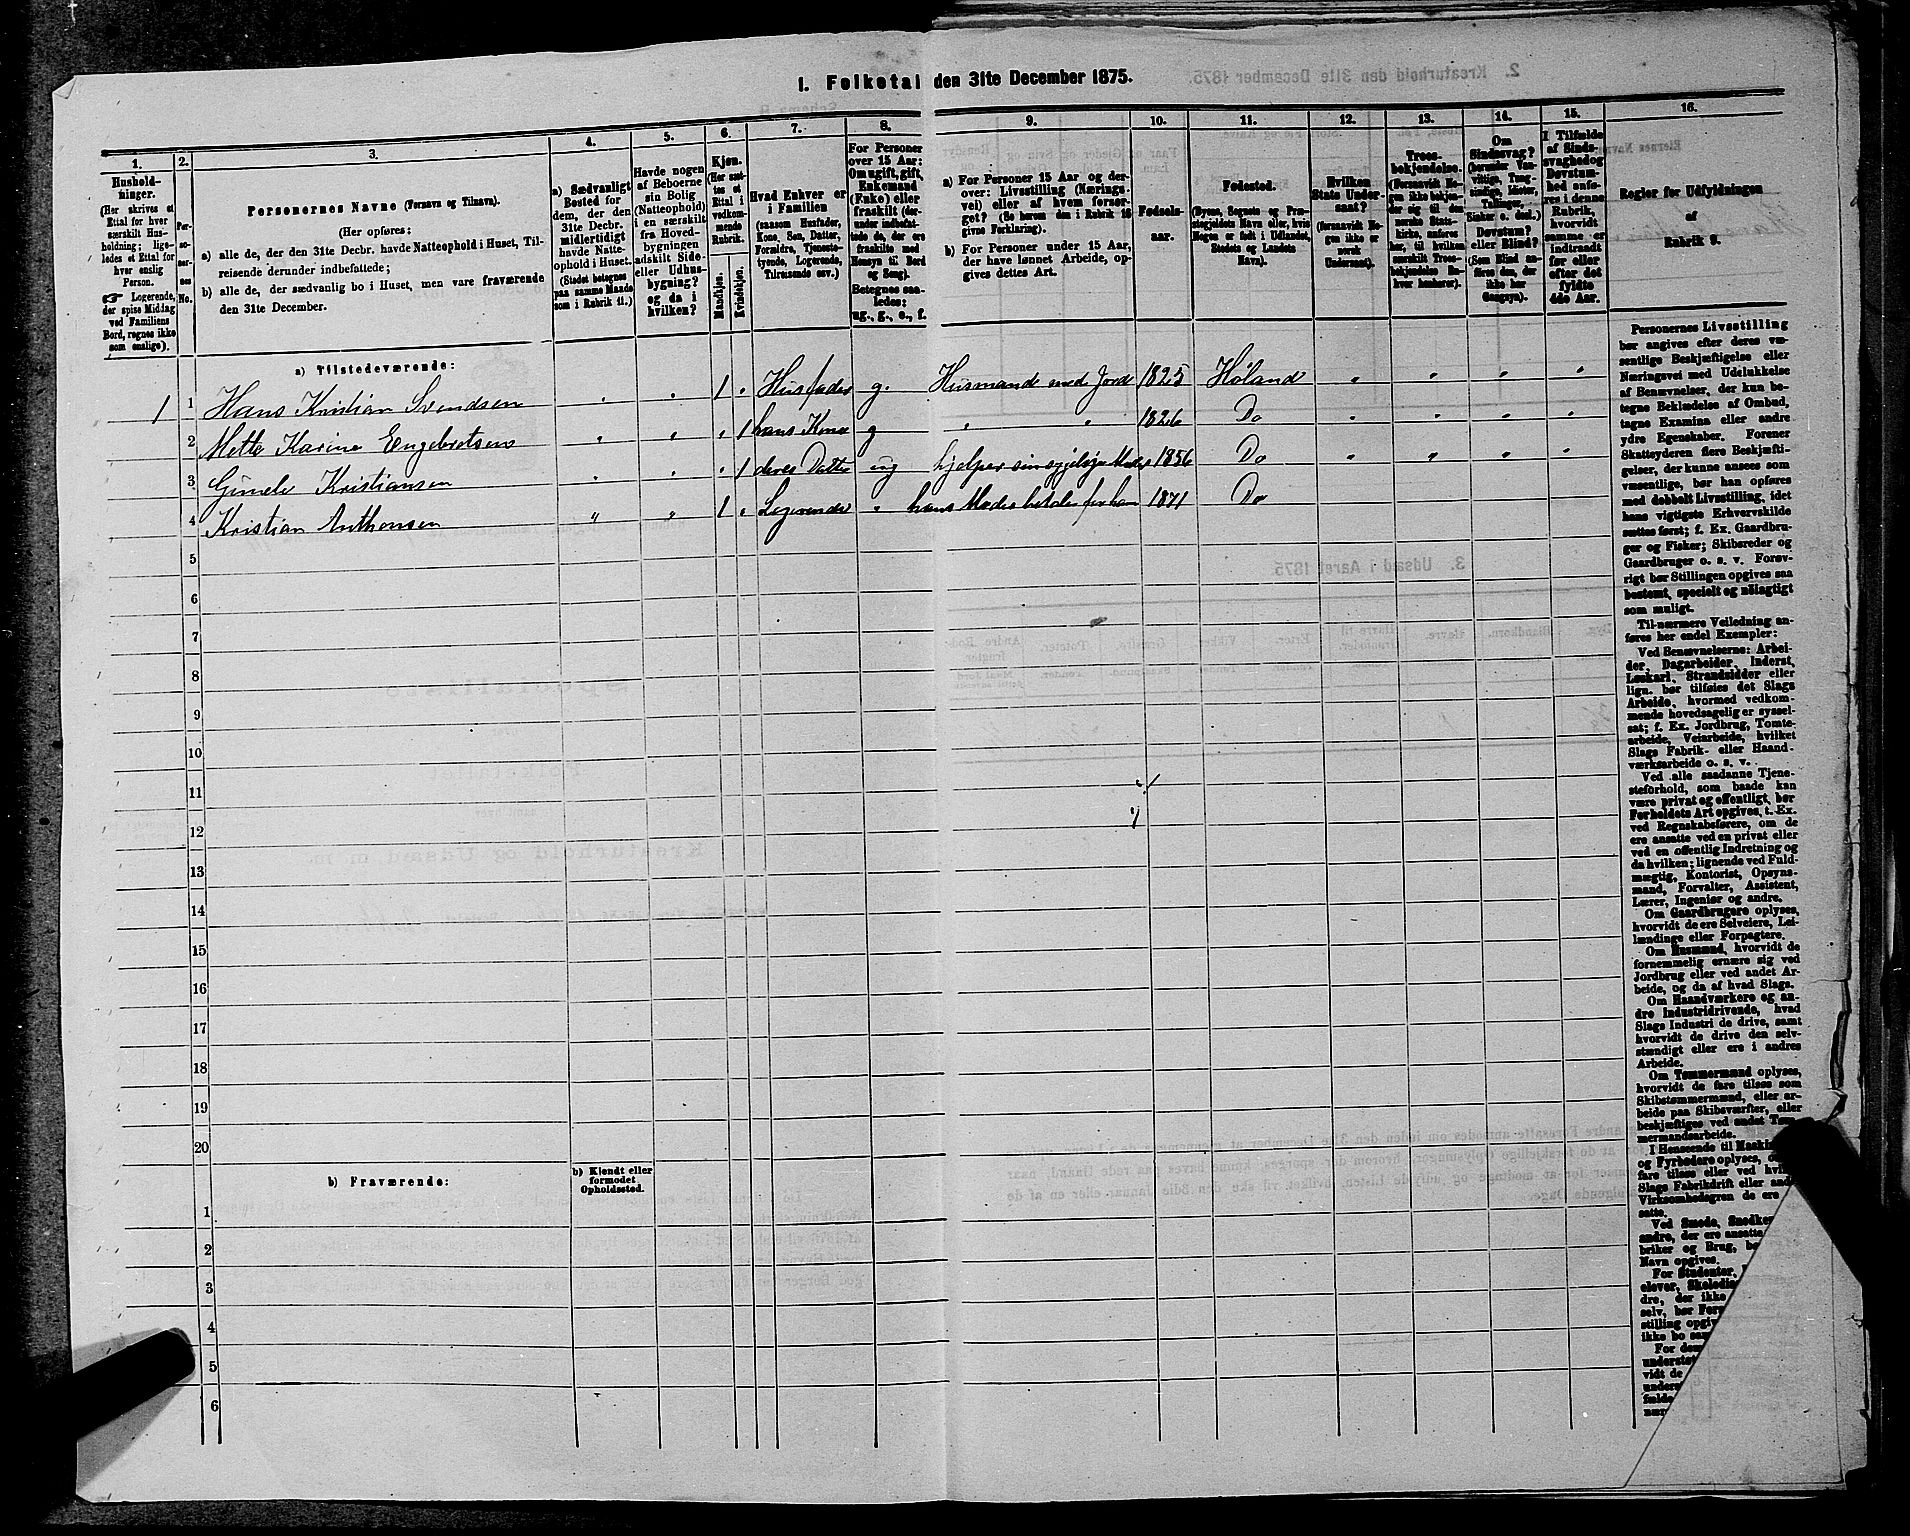 1. Folketal den 31te December 1875.
1. 2. 3. 4. 5. 6. 7. 8. 9. 10. 11. 12. 13. 14. 15. 16.
Hushold-
ninger.
(Her skrives et
Ettal for hver
særskilt Hus-
holdning; lige-
ledes et Ettal for
hver enslig
Person.
☞ Logerende,
der spise Middag
ved Familiens
Bord, regnes ikke
som enslige).
Per-
so-
ner-
nes
No.
Personernes Navne (Fornavn og Tilnavn).
(Her opføres:
a) alle de, der den 31te Decbr. havde Natteophold i Huset, Til-
reisende derunder indbefattede;
b) alle de, der sædvanlig bo i Huset, men vare fraværende
den 31te December.
a) Sædvanligt
Bosted for
dem, der den
31te Decbr.
midlertidigt
havde Natte-
ophold i Huset.
(Stedet betegnes
paa samme Maade
som i Rubrik 11.)
Havde nogen
af Beboerne
sin Bolig
(Natteophold)
i en særskilt
fra Hoved-
bygningen
adskilt Side-
eller Udhus-
bygning?
og da i
hvilken?
Kjøn.
(Her sæt-
tes et
Ettal i
vedkom-
mende
Rubrik.
Mandkjøn.
Kvindekjøn.
Hvad Enhver er
i Familien
(saasom Husfader,
Kone, Søn, Datter,
Forældre, Tjeneste-
tyende, Logerende,
Tilreisende osv.)
For Personer
over 15 Aar:
Om ugift, gift,
Enkemand
(Enke) eller
fraskilt (der-
under indbefat-
tede de, der ere
fraskilte med
Hensyn til Bord
og Seng).
Betegnes saa-
ledes:
ug., g., e., f.
a) For Personer 15 Aar og der-
over: Livsstilling (Nærings-
vei) eller af hvem forsør-
get? (Se herom den i Rubrik 16
givne Forklaring).
b) For Personer under 15 Aar,
der have lønnet Arbeide, op-
gives dettes Art.
Fødsels-
aar.
Fødested.
(Byens, Sognets og Præ-
stegjeldets Navn eller, hvis
Nogen er født i Udlandet,
Stedets og Landets
Navn).
Hvilken
Stats Under-
saat?
(forsaavidt No-
gen ikke er
norsk
Undersaat).
Troes-
bekjendelse.
(Forsaavidt No-
gen ikke bekjen-
der sig til den
norske Stats-
kirke, anføres
her, til hvilken
Troesbekjendelse En-
hver henhører).
Om
Sindssvag?
(herunder Van-
vittige, Tung-
sindige, Idioter,
Tullinger,
Sinker o. desl.)
Døvstum?
eller Blind?
(Som Blind an-
føres den, der
ikke har
Gangsyn).
I Tilfælde
af Sinds-
svaghed og
Døvstum-
hed anfø-
res i denne
Rubrik,
hvorvidt
samme er
indtraadt
før eller
efter det
fyldte
4de Aar.
Regler for Udfyldningen
af
Rubrik 9.
a) Tilstedeværende:
1 1 Hans Kristian Svendsen 1 Husfader g. Husmand med Jord 1825 Høland
2 Mette Karine Engebretsen 1 hans Kone g 1826 Do
3 Gunele Kristiansen 1 deres Datter ug hjelper sin Moder 1856 Do
4 Kristian Anthonsen 1 Logerende hans Moder betaler for ham 1871 Do
5
6
7
8
9
10
11
12
13
14
15
16
17
18
19
20
b) Fraværende:
b) Kjendt eller
formodet
Opholdssted.
1
2
3
4
5
6
Personernes Livsstilling
bør angives efter deres væ-
sentlige Beskjæftigelse eller
Næringsvei med Udelukkelse
af Benævnelser, der kun be-
tegne Beklædelse af Ombud,
tagne Examina eller andre
ydre Egenskaber. Forener
Skatteyderen flere Beskjæfti-
gelser, der kunne ansees som
væsentlige, bør han opføres
med dobbelt Livsstilling, idet
hans vigtigste Erhvervskilde
sættes først; f. Ex. Gaardbru-
ger og Fisker; Skibsreder og
Gaardbruger o. s. v. Forøv-
rigt bør Stillingen opgives saa
bestemt, specielt og nøiagtigt
som muligt.
Til nærmere Veiledning an-
føres her endel Exempler:
Ved Benævnelserne: Arbei-
der, Dagarbeider, Inderst,
Løskarl, Strandsidder eller
lign. bør tilføies det Slags
Arbeide, hvormed vedkom-
mende hovedsagelig er syssel-
sat; f. Ex. Jordbrug, Tomte-
arbeide, Veiarbeide, hvilket
Slags Fabrik- eller Haand-
værksarbeide o. s. v.
Ved alle saadanne Tjene-
steforhold, som baade kan
være privat og offentligt, bør
Forholdets Art opgives, t. Ex.
ved Regnskabsførere, om de
ere ansatte ved en privat eller
ved en offentlig Indretning og
da hvilken; lignende ved Fuld-
mægtig, Kontorist, Opsyns-
mand, Forvalter, Assistent,
Lærer, Ingeniør og andre.
Om Gaardbrugere oplyses,
hvorvidt de ere Selveiere, Lei-
lændinge eller Forpagtere.
Om Husmænd, hvorvidt de
fornemmelig ernære sig ved
Jordbrug eller ved andet Ar-
beide, og da af hvad Slags.
Om Haandværkere og an-
dre Industridrivende, hvad
Slags Industri de drive, samt
hvorvidt de drive den selv-
stændigt eller ere i andres
Arbeide.
Om Tømmermænd oplyses,
hvorvidt de fare tilsøs som
Skibstømmermænd, eller ar-
beide paa Skibsværfter, eller
beskjæftiges ved andet Tøm-
mermandsarbeide.
I Henseende til Maskin
og Fyrbødere oplyses,
fare tilsøs eller ved hvil
Slags Fabrikdrift eller and
Virksomhedsgren de ere
satte.
Ved Smede, Snedker
andre, der ere ansatte
briker og Brug, b
Navn opgives.
For Studenter,
elever, Skoledis
dre, der ikke
selv, bør For
stilling opgiv
ikke bo sa
For de
understø
vidt de
unders
fælde
nær